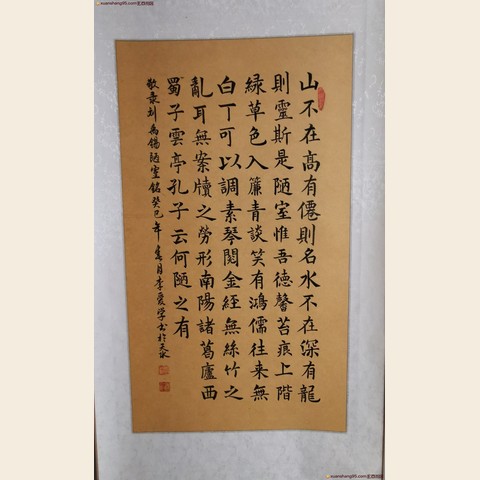 xuanshang99.com
山不在高有僊則名水不在深有龍
則靈斯是陋室惟吾德馨苔痕上階
緑草色入簾青談笑有鴻儒往来無
白丁可以調素琴閲金經無絲竹之
亂耳無案牘之勞形南陽諸葛廬西
蜀子雲亭孔子云何陋之有
敬录刘禹锡陋室銘癸巳年春月李爱学书於天水
xuanshang99.com